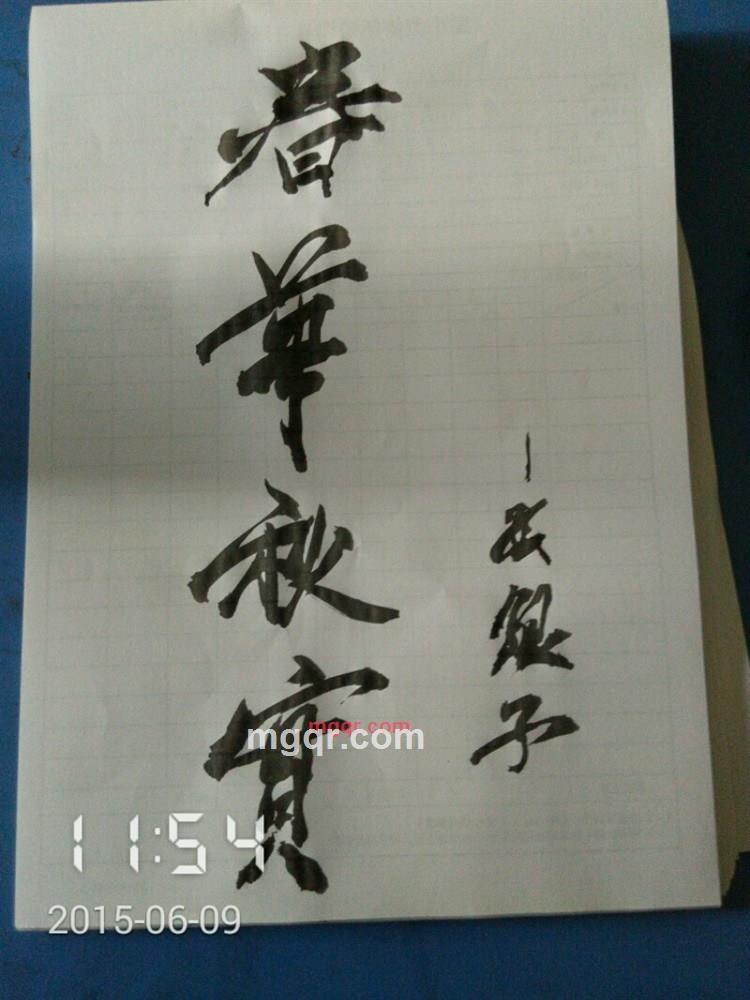 春華秋實
子
mgqr.com
mgqr.com
11:54
2015-06-09